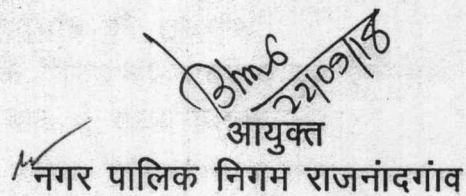 22/09/18
आयुक्त
नगर पालिक निगम राजनांदगांव